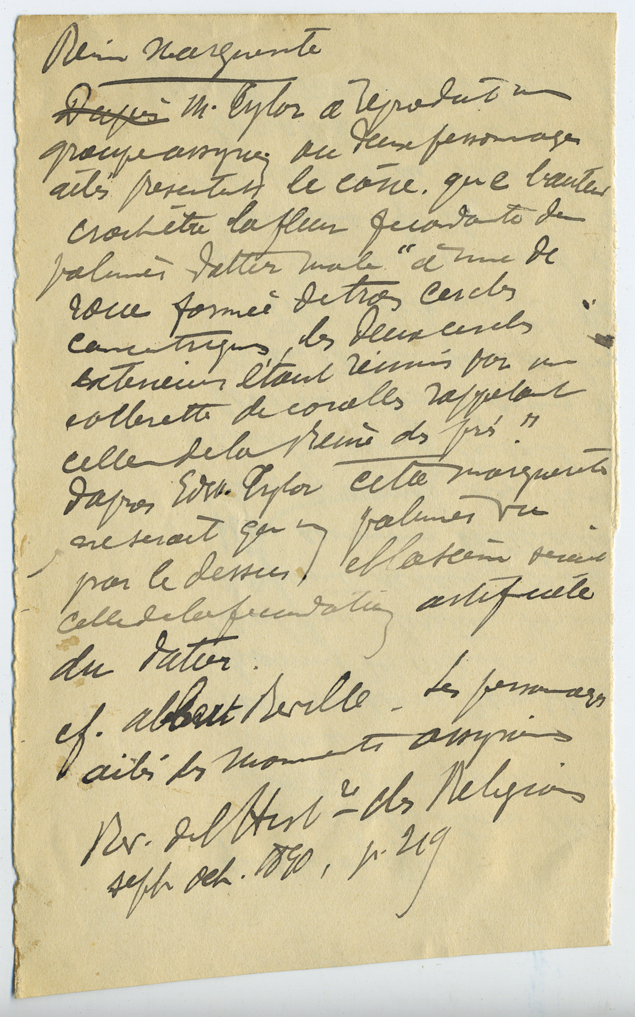 Reine Marguerite
Dapres M. Tylor a reproduit un
groupe assyrien ou deux personnages
ailés presentent le cône, que l'auteur
la fleur fecondante du
palmier dattier male "à une de
roue formée de trois cercles
concentriques, les deux cercles
exterieurs étant réunis par un
collerette de corolles rappelant
celles de la Reine des prés."
Dapres Edw. Tylor cette marguerite
ne serait qu'un palmier vu
par le dessus, et la scène serait
celle de la fecondation artificielle
du dattier.
cf. Albert Reville - Les personnages
ailés des monuments assyriens
Rev. de l'Histre des Religions
sept oct. 1890, p. 219